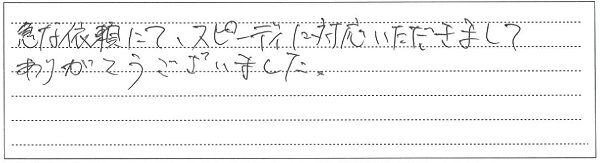 急な依頼にて、スピーディに対応いただきまして
ありがとうございました。